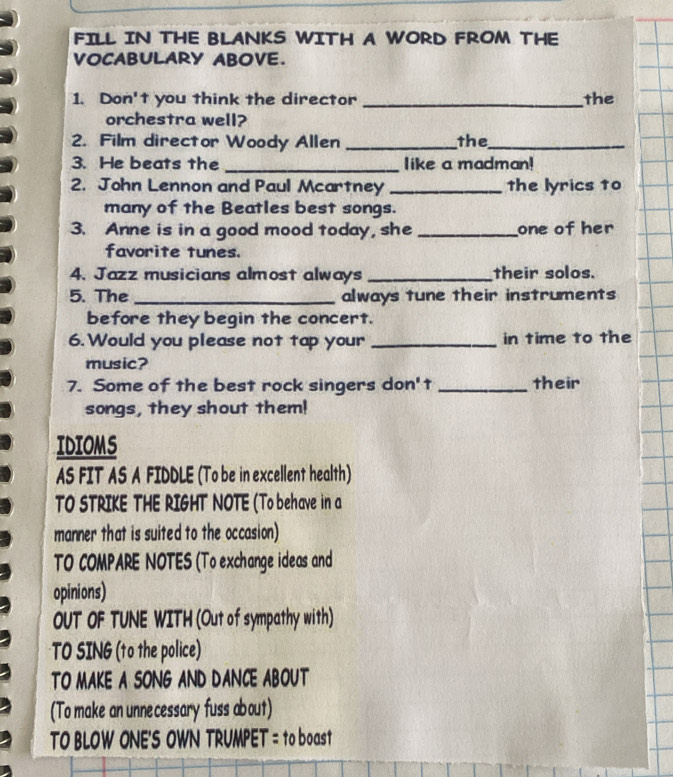 FILL IN THE BLANKS WITH A WORD FROM THE
VOCABULARY ABOVE.
1. Don't you think the director ____________________the
orchestra well?
2. Film director Woody Allen __________the____________
3. He beats the ________________ like a madman!
2. John Lennon and Paul Mcartney __________ the lyrics to
many of the Beatles best songs.
3. Anne is in a good mood today, she _________one of her
favorite tunes.
4. Jazz musicians almost always ___________their solos.
5. The __________________ always tune their instruments
before they begin the concert.
6. Would you please not tap your ___________ in time to the
music?
7. Some of the best rock singers don't ________ their
songs, they shout them!
IDIOMS
AS FIT AS A FIDDLE (To be in excellent health)
TO STRIKE THE RIGHT NOTE (To behave in a
manner that is suited to the occasion)
TO COMPARE NOTES (To exchange ideas and
opinions)
OUT OF TUNE WITH (Out of sympathy with)
TO SING (to the police)
TO MAKE A SONG AND DANCE ABOUT
(To make an unnecessary fuss about)
TO BLOW ONE'S OWN TRUMPET = to boast